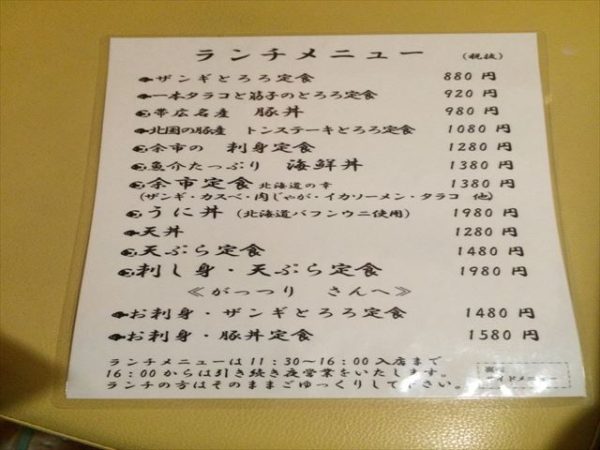 ランチメニュー (税抜)
ザンギとろろ定食 880円
一本タラコと筋子のとろろ定食 920円
帯広名産 豚丼 980円
北国の豚産 トンステーキとろろ定食 1080円
余市の 刺身定食 1280円
魚介たっぷり 海鮮丼 1380円
余市定食 北海道の幸 1380円
(ザンギ・カスベ・肉じゃが・イカソーメン・タラコ 他)
うに丼 (北海道バフンウニ使用) 1980円
天丼 1280円
天ぷら定食 1480円
刺し身・天ぷら定食 1980円
≪がっつり さんへ≫
お刺身・ザンギとろろ定食 1480円
お刺身・豚丼定食 1580円
ランチメニューは11:30〜16:00入店まで
16:00からは引き続き夜営業をいたします。
ランチの方はそのままごゆっくりして下さい。
サイドメニュー